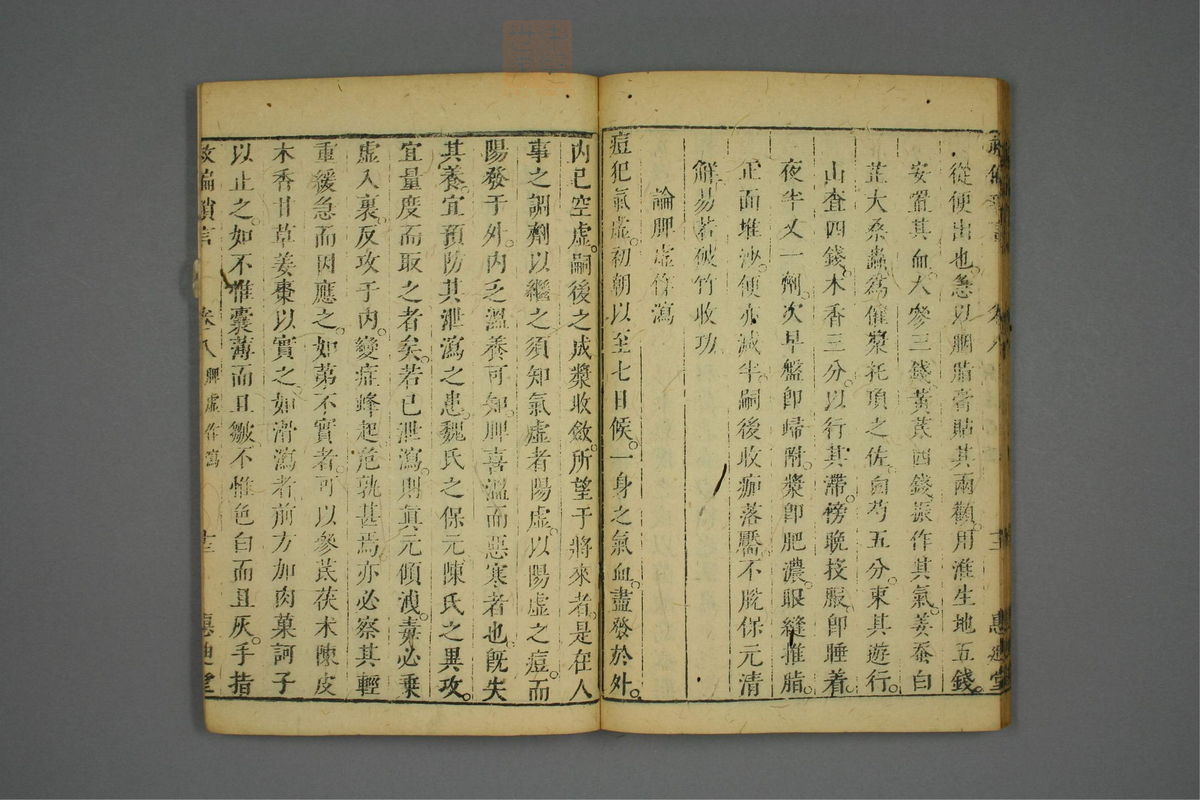 從便出也急以胭脂膏貼其兩顴用淮生地五錢
安置其血人參三錢黃芪四錢振作其氣姜蚕白
芷大桑蟲為催漿托頂之佐白芍五分東其遊行
山查四錢木香三分以行其滯傍晚投服卽睡着
夜半又一劑次早盤卽歸附漿卽肥濃眼縫推脂
正面堆沙便亦減半嗣後收痂落靨不脫保元清
解易若破竹收功
論脾虛作瀉
痘犯氣虛初朝以至七日候一身之氣血盡發於外
內已空虛嗣後之成漿收斂所望于將來者是在人
事之調劑以繼之須知氣虛者陽虛以陽虛之痘而
陽發于外內乏溫養可知脾喜溫而惡寒者也旣失
其養宜預防其泄瀉之患魏氏之保元陳氏之異攻
宜量度而取之者矣若已泄瀉則眞元傾洩毒必乗
虛入裏反攻于內變症蜂起危孰甚焉亦必察其輕
重緩急而因應之如第不實者可以參芪茯术陳皮
木香甘草姜棗以實之如滑瀉者前方加肉菓訶子
以止之如不惟囊薄而且皺不惟色白而且灰手指
救偏瑣言 卷八 脾虛作瀉 十三 惠迪堂